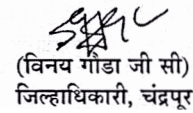 (विनय गौडा जी सी)
जिल्हाधिकारी, चंद्रपूर